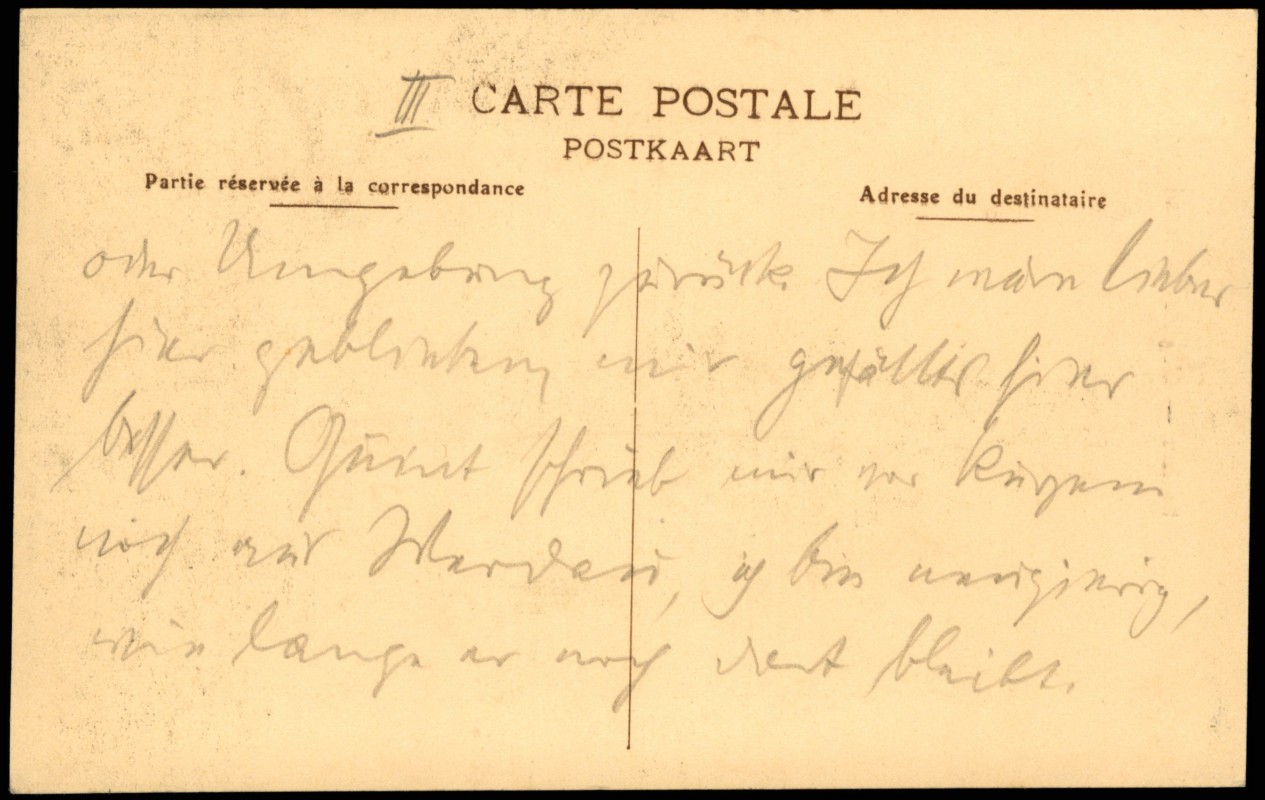 III CARTE POSTALE
POSTKAART
Partie réservée à la correspondance
Adresse du destinataire
oder Umgebung zurück. Ich wäre lieber
hier geblieben, mir gefällts hier
besser. Quint schrieb mir vor kurzem
noch aus Werdau, ich bin neugierig,
wie lange er noch dort bleibt.